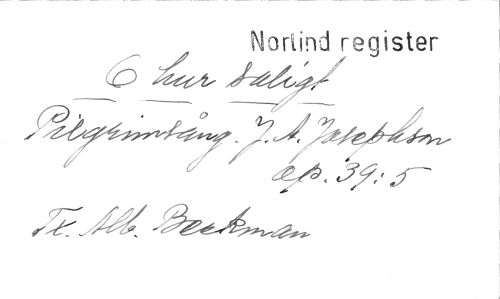 Norlind register
O hur saligt
Pilgrimsång. J. A. Josephson
op. 39:5
Tx. Alb. Beckman